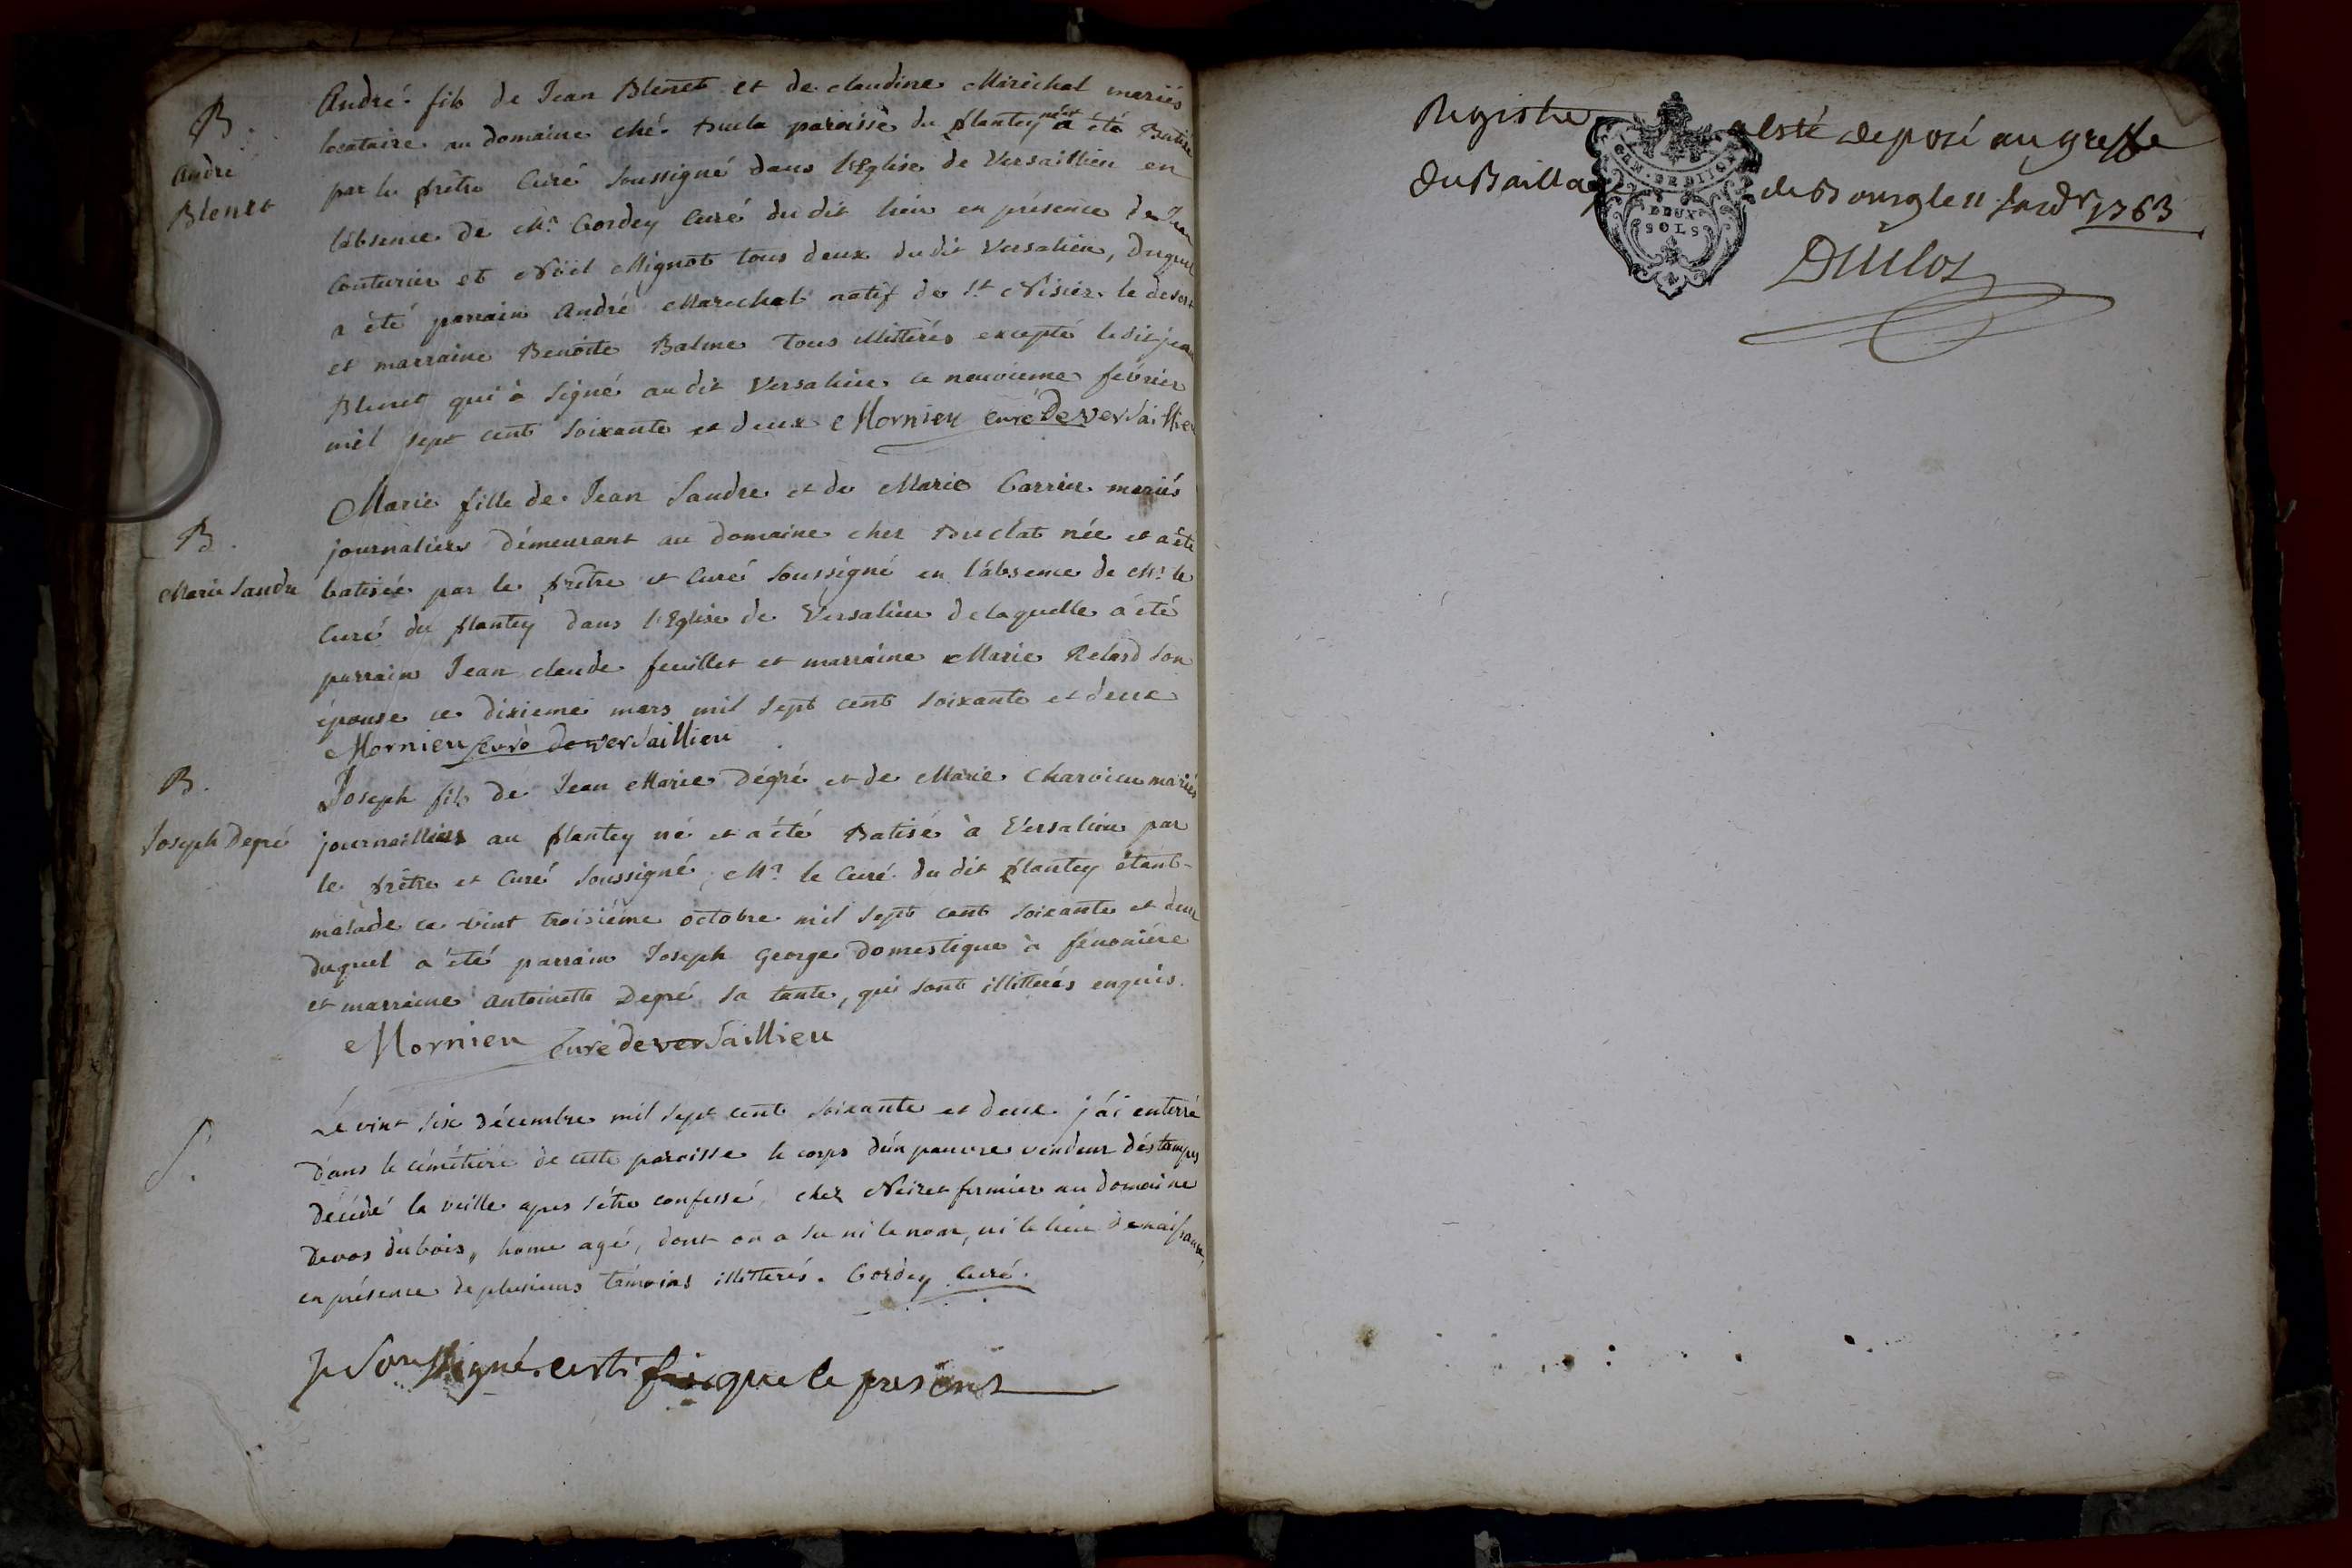 B.
André
Blenet
André fils de Jean Blenet et de claudine Maréchal mariés
locataire au domaine ché Bucla paroisse du plantey né et a été Batisé
par le prêtre Curé Soussigné dans l'Eglise de Versaillieu en
l'absence de Mr. Cordey Curé du dit lieu en présence de Jean
Couturier et Noël Mignot tous deux du dit Versalieu, Duquel
a été parrain André Marechal natif de St. Nisier le desert
et marraine Benoite Balme tous illitterés excepté le dit jean
Blenet qui à signé au dit Versalieu ce neuvieme fevrier
mil sept cent soixante et deux Mornieu curé De verSaillieu
B.
Marie Sandre
Marie fille de Jean Sandre et de Marie Carrier mariés
journaliers démeurant au domaine cher Buclat née et a été
batisée par le prêtre et Curé Soussigné en l'absence de Mr. le
Curé du plantey dans l'Eglise de Versalieu de laquelle a été
parrain Jean claude feuillet et marraine Marie Relard son
épouse ce dixieme mars mil sept cent soixante et deux
Mornieu curé de verSaillieu
B.
Joseph Depré
Joseph fils de Jean Marie Dépré et de Marie Charvieu mariés
journailliers au plantey né et a été Batisé à Versalieu par
le prêtre et Curé Soussigné, Mr. le Curé du dit plantey étant
malade ce vint troisiéme octobre mil sept cent soixante et deux
duquel a été parrain Joseph George Domestique à fénoniére
et marraine antoinette Depré sa tante, qui sont illitterés enquis.
Mornieu Curé de verSaillieu
S.
Le vint six décembre mil sept cent soixante et deux j'ai enterré
dans le cémétiere de cette paroisse le corps d'un pauvre vendeur d'éstampes
décédé la veille apres s'étre confessé, chez Neiret fermier au domaine
Devos du bois, home agé, dont on a su ni le nom, ni le lieu de naissance,
en présence de plusieurs témoins illitterés. Cordey Curé.
Je Soussigné certifie que le present
Registre a esté deposé au greffe
du Baillage de Bourg le 11 1763
GEN. DE DIJON
DEUX
SOLS